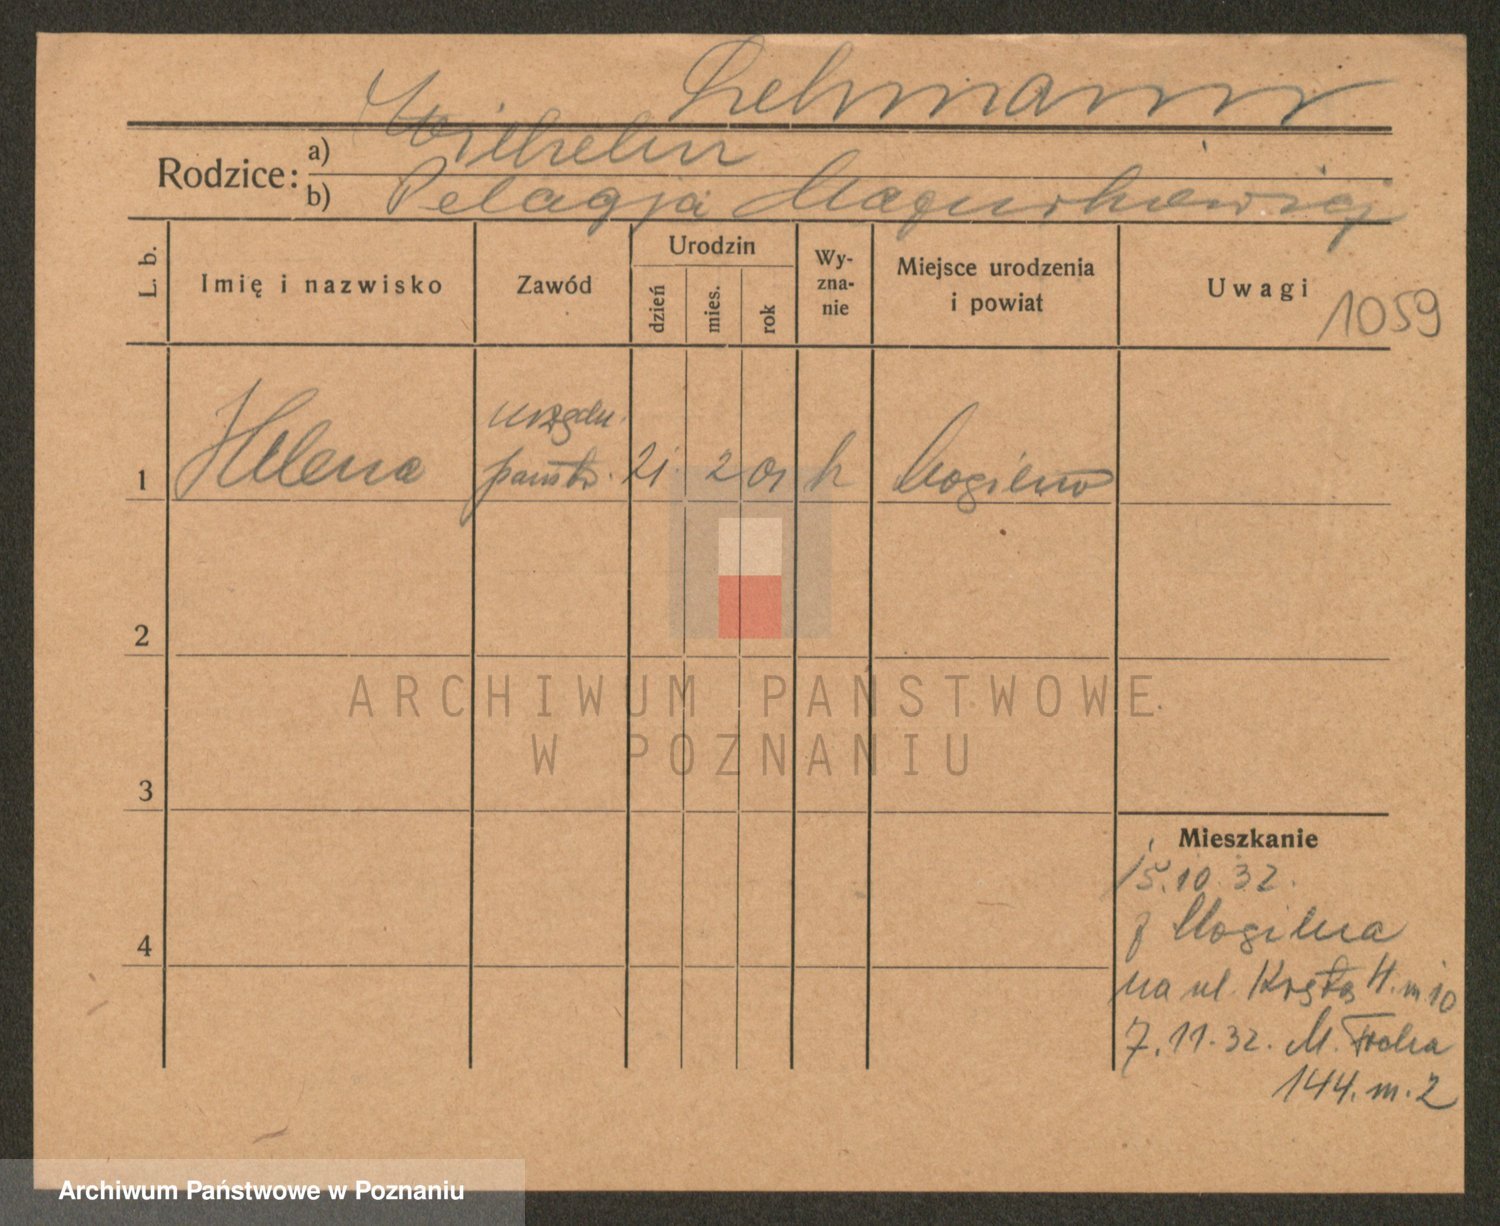 Lehmann
Rodzice: a) Wilhelm
b) Pelagja
L. b. Imię i nazwisko Zawód Urodzin dzień mies. rok Wy-zna-nie Miejsce urodzenia i powiat Uwagi 1059
1 Helena urzędn. państw. 21 2 01 k Mogilno
2
3
4
Mieszkanie
15.10.32.
z Mogilna
na ul. Kręta m 10
7.11.32. M. Focha
144. m. 2
ARCHIWUM PAŃSTWOWE
W POZNANIU
Archiwum Państwowe w Poznaniu